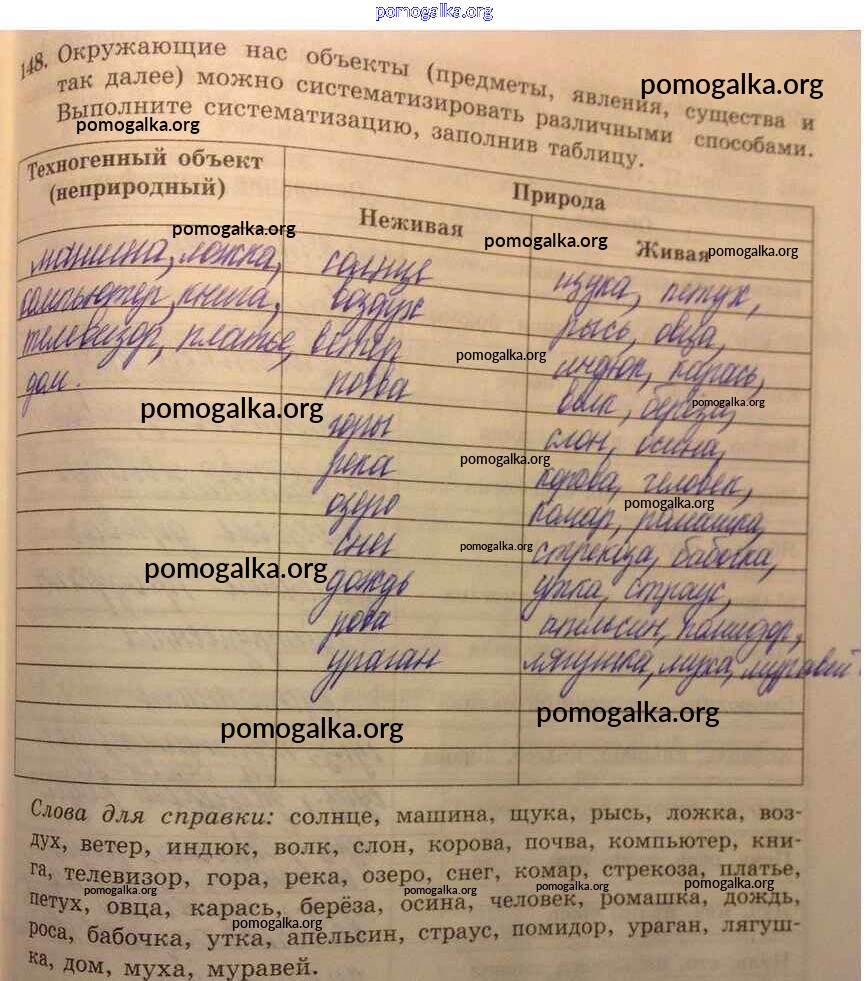 pomogalka.org
148. Окружающие нас объекты (предметы, явления, существа и
pomogalka.org
так далее) можно систематизировать различными способами.
Выполните систематизацию, заполнив таблицу.
pomogalka.org
Техногенный объект
(неприродный)
Природа
Неживая
Живая
pomogalka.org
pomogalka.org
pomogalka.org
машина, ложка,
компьютер, книга,
телевизор, платье,
дом.
солнце
воздух
ветер
почва
горы
река
озеро
снег
дождь
роса
ураган
щука, петух,
рысь, овца,
индюк, карась,
волк, берёза,
слон, осина,
корова, человек,
комар, ромашка,
стрекоза, бабочка,
утка, страус,
апельсин, помидор,
лягушка, муха, муравей.
pomogalka.org
pomogalka.org
pomogalka.org
pomogalka.org
pomogalka.org
pomogalka.org
pomogalka.org
pomogalka.org
pomogalka.org
Слова для справки: солнце, машина, щука, рысь, ложка, воз-
дух, ветер, индюк, волк, слон, корова, почва, компьютер, кни-
га, телевизор, гора, река, озеро, снег, комар, стрекоза, платье,
pomogalka.org
pomogalka.org
pomogalka.org
pomogalka.org
петух, овца, карась, берёза, осина, человек, ромашка, дождь,
pomogalka.org
роса, бабочка, утка, апельсин, страус, помидор, ураган, лягуш-
ка, дом, муха, муравей.